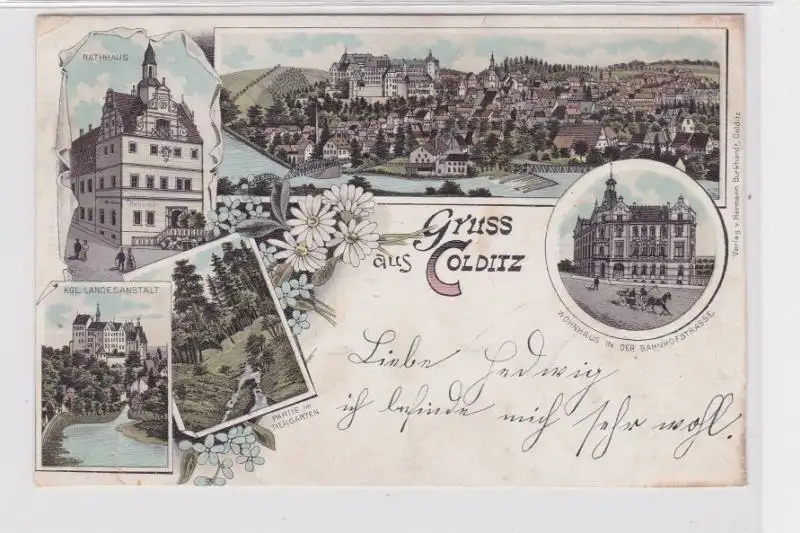 RATHHAUS
Gruss
aus COLDITZ
KGL. LANDESANSTALT
PARTIE IM
TIERGARTEN
WOHNHAUS IN DER BAHNHOFSTRASSE
Verlag v. Hermann Burkhardt, Colditz
Liebe Hedwig
ich befinde mich sehr wohl.